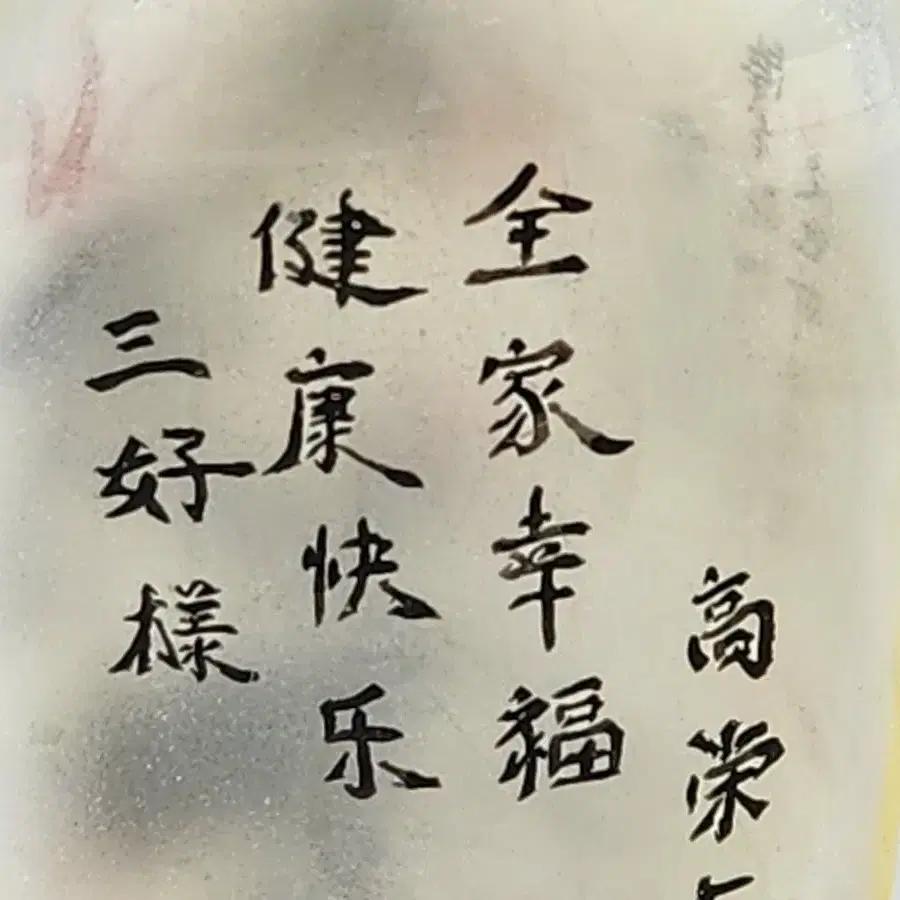 高荣
全家幸福
健康快乐
三好様